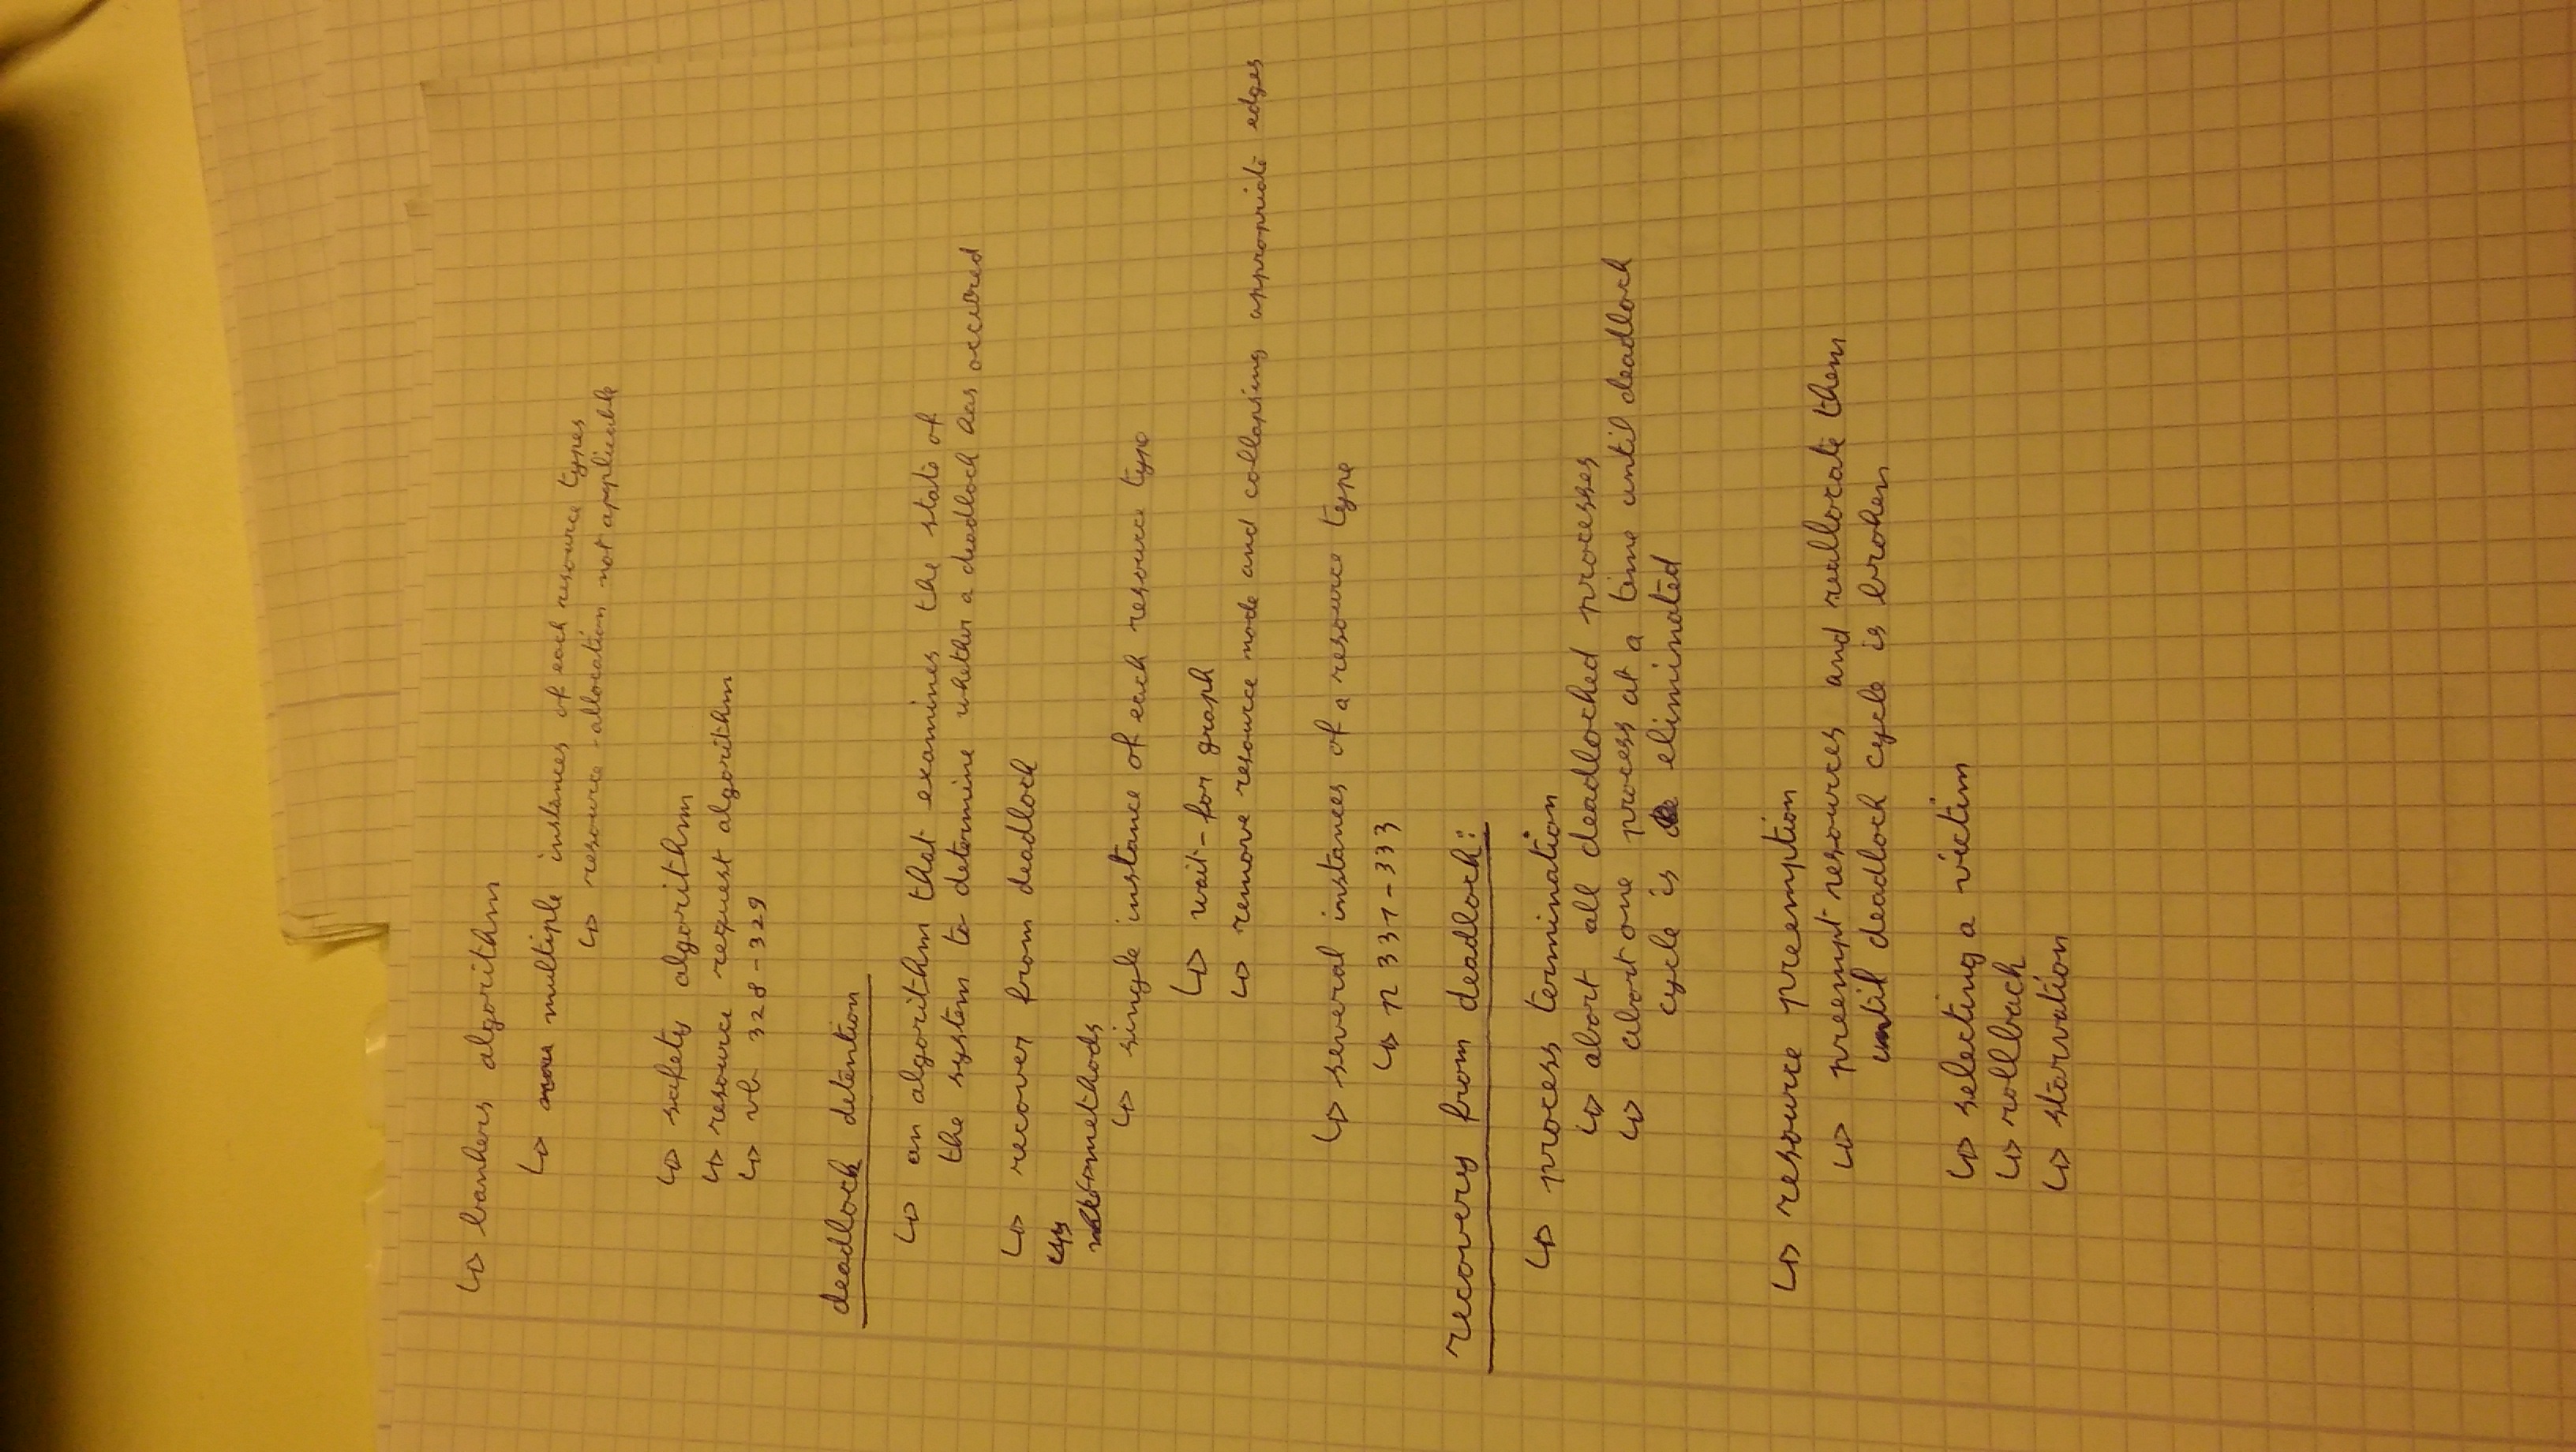 ↳ bankers algorithm
↳ multiple instances of each resource types
↳ resource-allocation not applicable
↳ safety algorithm
↳ resource request algorithm
↳ vb 328-329
deadlock detention
↳ an algorithm that examines the state of
the system to determine whether a deadlock has occured
↳ recover from deadlock
methods
↳ single instance of each resource type
↳ wait-for graph
↳ remove resource node and collapsing appropriate edges
↳ several instances of a resource type
↳ p 331-333
recovery from deadlock:
↳ process termination
↳ abort all deadlocked processes
↳ abort one process at a time until deadlock
cycle is eliminated
↳ resource preemption
↳ preempt resources and reallocate them
until deadlock cycle is broken
↳ selecting a victim
↳ rollback
↳ starvation